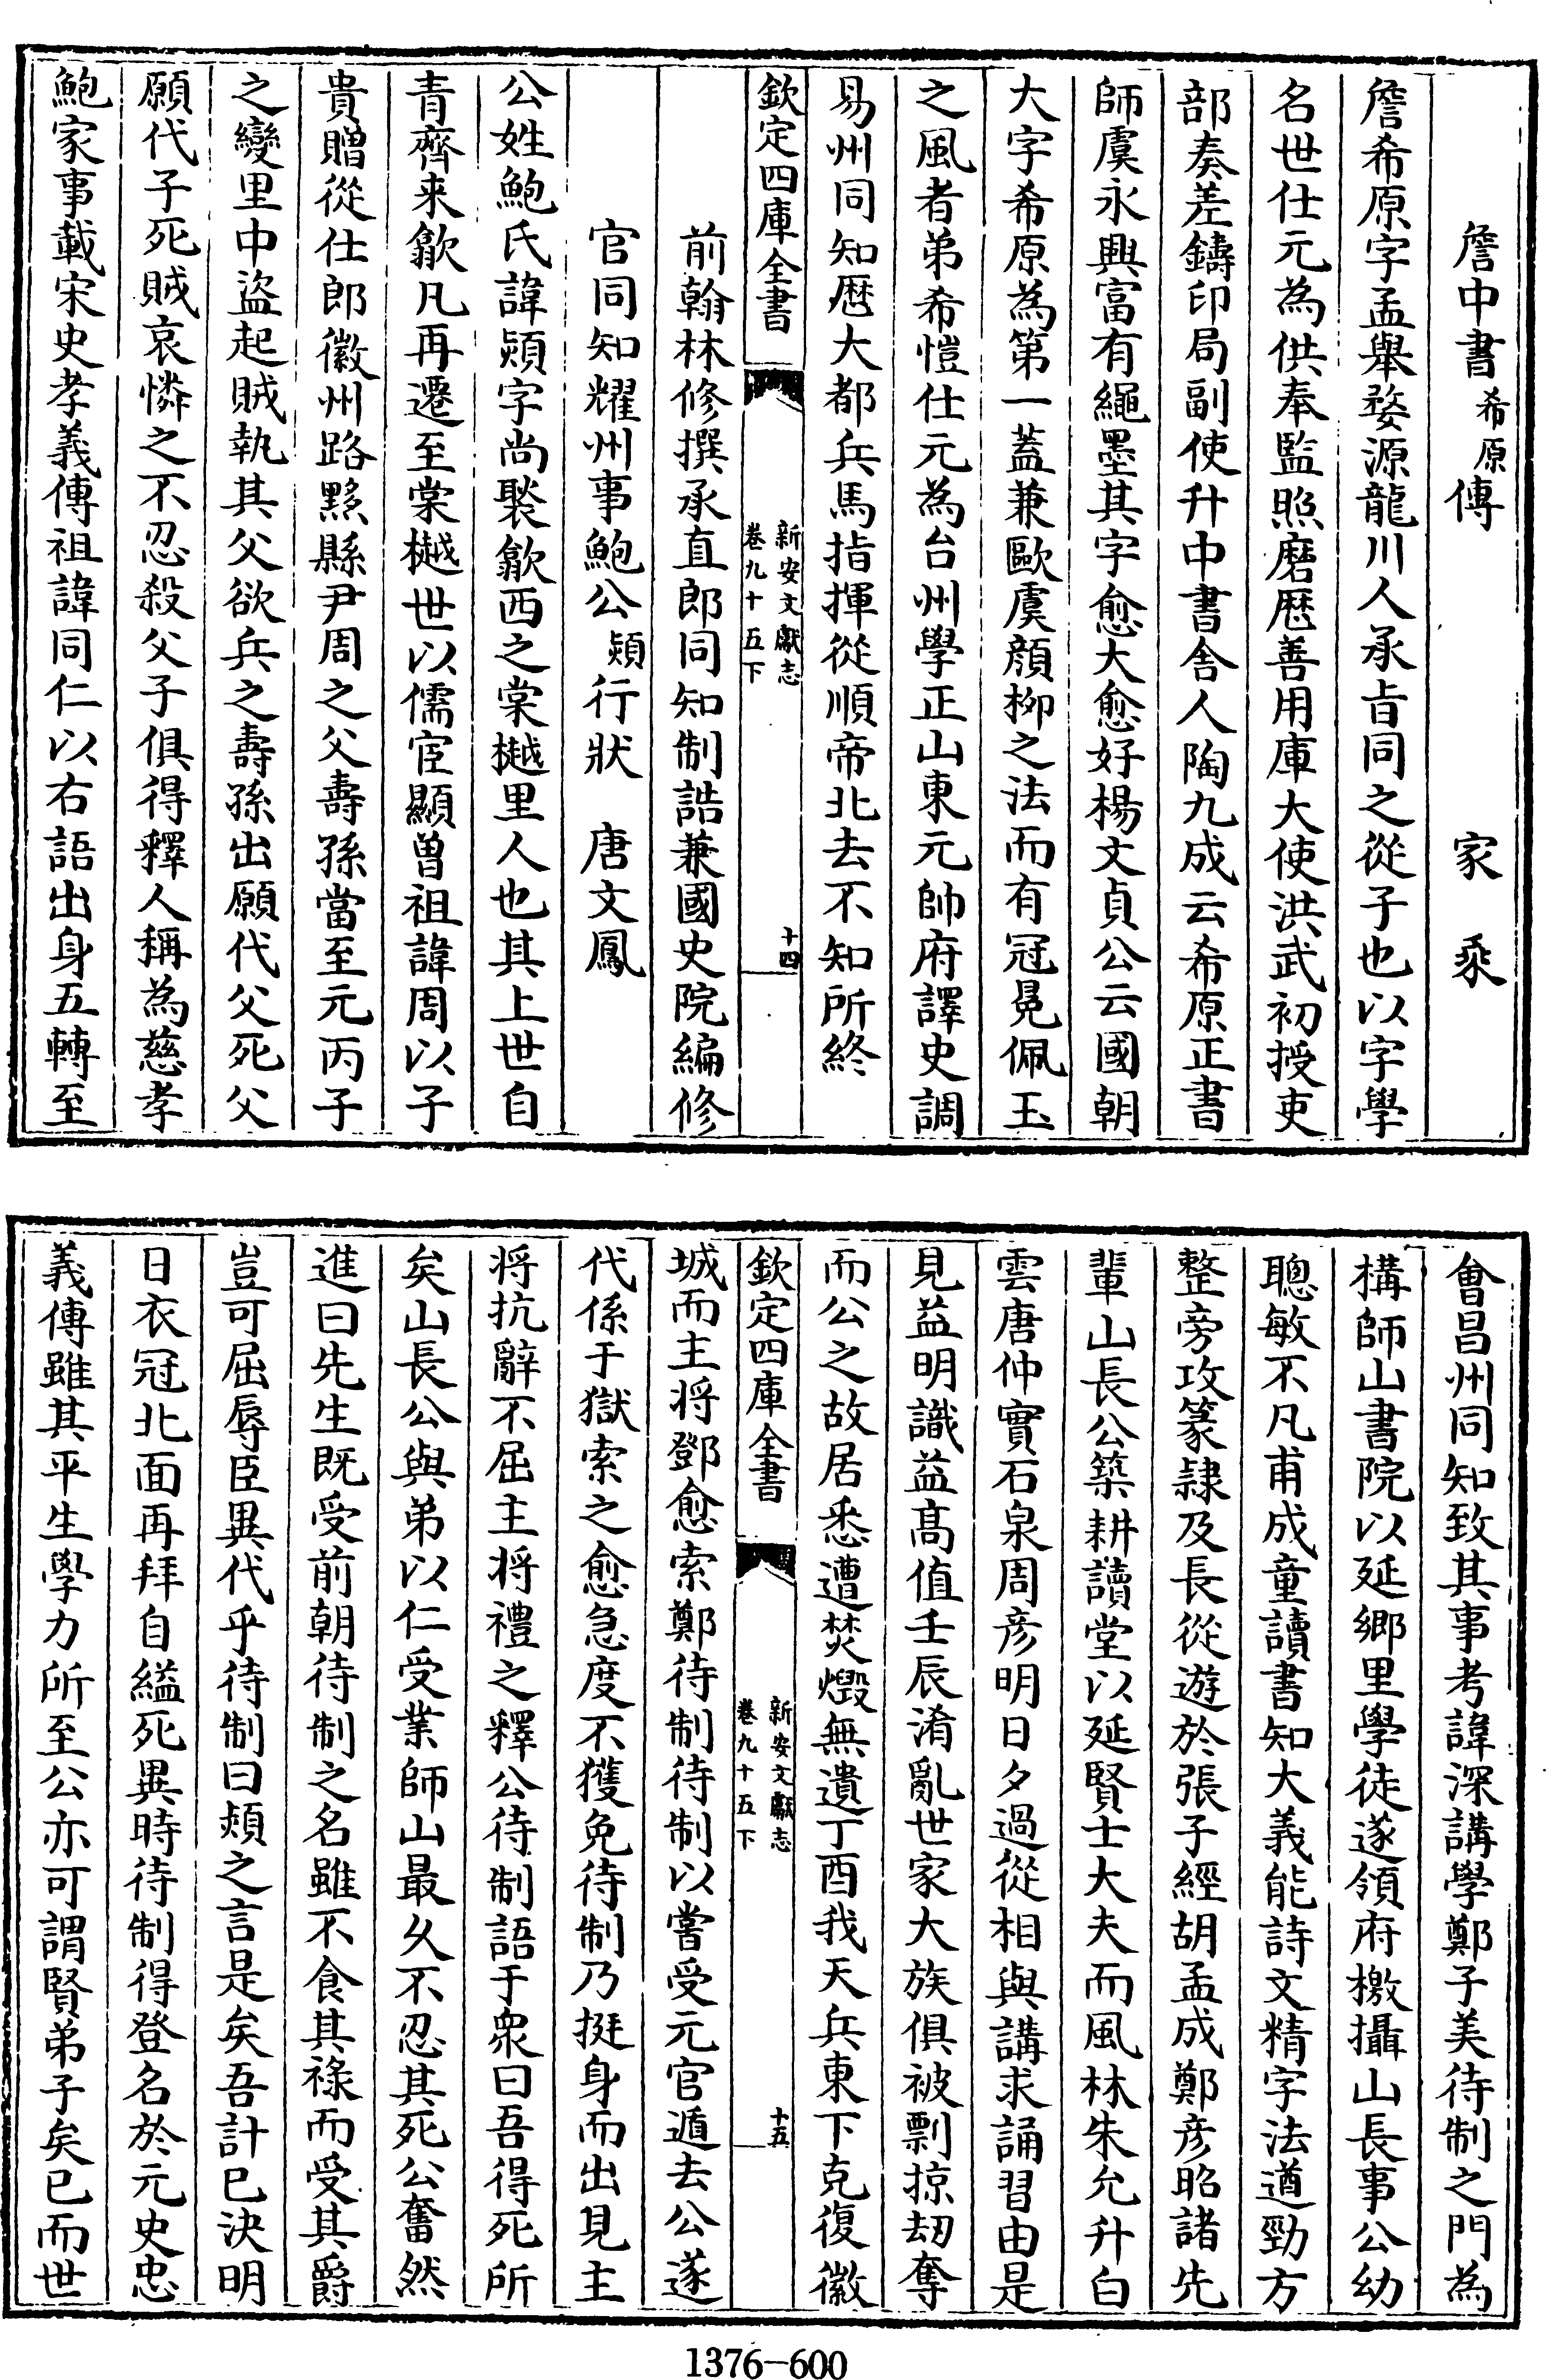 詹中書希原傳　家乘
詹希原字孟舉婺源龍川人承旨同之從子也以字學
名世仕元為供奉監照磨歴善用庫大使洪武初授吏
部奏差鑄印局副使升中書舍人陶九成云希原正書
師虞永興富有繩墨其字愈大愈好楊文貞公云國朝
大字希原為第一蓋兼歐虞顔柳之法而有冠冕佩玉
之風者弟希愷仕元為台州學正山東元帥府譯史調
易州同知歴大都兵馬指揮從順帝北去不知所終
欽定四庫全書　新安文獻志　卷九十五下　十四
前翰林修撰承直郎同知制誥兼國史院編修
官同知耀州事鮑公熲行狀　唐文鳳
公姓鮑氏諱熲字尚褧歙西之棠樾里人也其上世自
青齊来歙凡再遷至棠樾世以儒宦顯曾祖諱周以子
貴贈從仕郎徽州路黟縣尹周之父壽孫當至元丙子
之變里中盜起賊執其父欲兵之壽孫出願代父死父
願代子死賊哀憐之不忍殺父子俱得釋人稱為慈孝
鮑家事載宋史孝義傳祖諱同仁以右語出身五轉至
會昌州同知致其事考諱深講學鄭子美待制之門為
構師山書院以延鄉里學徒遂領府檄攝山長事公幼
聰敏不凡甫成童讀書知大義能詩文精字法遒勁方
整旁攻篆隸及長從遊於張子經胡孟成鄭彥昭諸先
輩山長公築耕讀堂以延賢士大夫而風林朱允升白
雲唐仲實石泉周彥明日夕過從相與講求誦習由是
見益明識益髙值壬辰淆亂世家大族俱被剽掠刼奪
而公之故居悉遭焚燬無遺丁酉我天兵東下克復徽
欽定四庫全書　新安文獻志　卷九十五下　十五
城而主将鄧愈索鄭待制待制以嘗受元官遁去公遂
代係于獄索之愈急度不獲免待制乃挺身而出見主
将抗辭不屈主将禮之釋公待制語于衆曰吾得死所
矣山長公與弟以仁受業師山最久不忍其死公奮然
進曰先生既受前朝待制之名雖不食其祿而受其爵
豈可屈辱臣異代乎待制曰熲之言是矣吾計已決明
日衣冠北面再拜自縊死異時待制得登名於元史忠
義傳雖其平生學力所至公亦可謂賢弟子矣已而世
1376-600